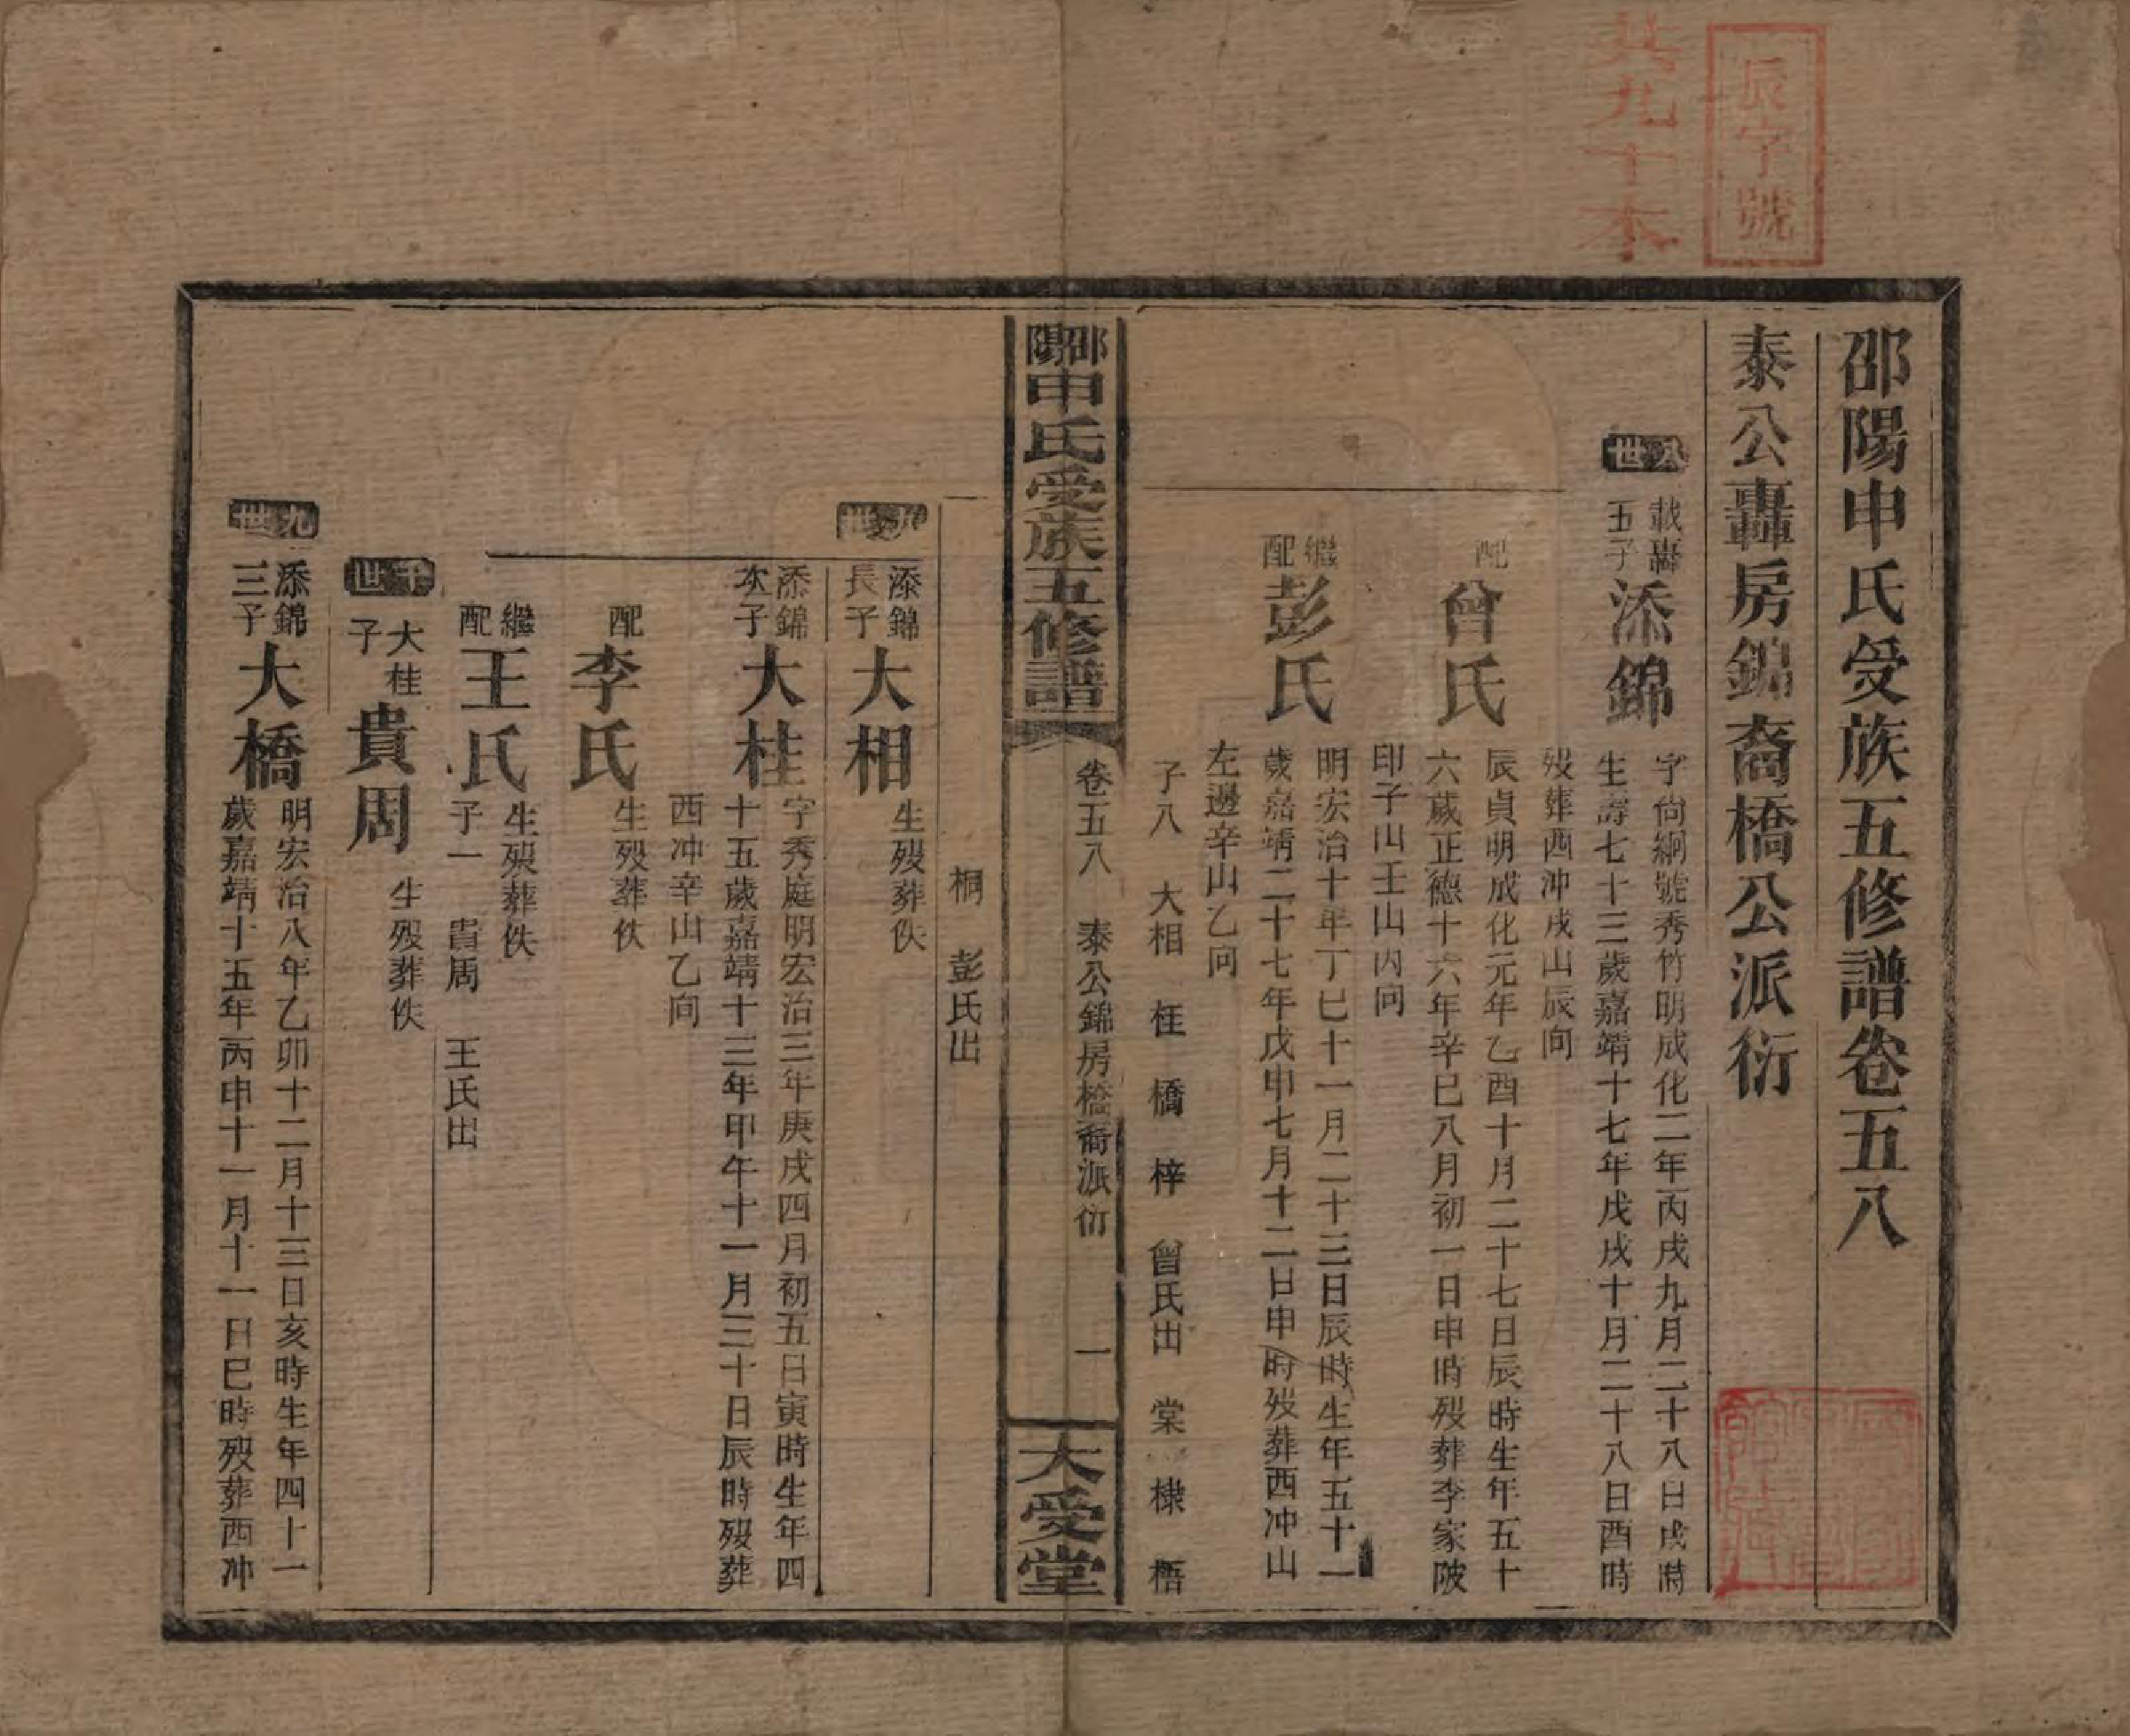 辰字號
共九十本
邵陽申氏受族五修譜卷五八
泰公轟房錦裔橋公派衍
八世
載轟
五子
添錦
字尚絅號秀竹明成化二年丙戌九月二十八日戌時
生壽七十三歲嘉靖十七年戊戌十月二十八日酉時
歿葬西冲戌山辰向
配
曾氏
辰貞明成化元年乙酉十月二十七日辰時生年五十
六歲正德十六年辛巳八月初一日申時歿葬李家陂
印子山壬山丙向
繼
配
彭氏
明宏治十年丁巳十一月二十三日辰時生年五十一
歲嘉靖二十七年戊申七月十二日申時歿葬西冲山
左邊辛山乙向
子八 大相 桂 橋 梓 曾氏出 棠 棣 梧
邵陽申氏受族五修譜
卷五八 泰公錦房橋裔派衍 一
大受堂
桐 彭氏出
九世
添錦
長子
大相
生歿葬佚
添錦
次子
大桂
字秀庭明宏治三年庚戌四月初五日寅時生年四
十五歲嘉靖十三年甲午十一月三十日辰時歿葬
西冲辛山乙向
配
李氏
生歿葬佚
繼
配
王氏
生歿葬佚
子一 貴周 王氏出
十世
大桂
子
貴周
生歿葬佚
九世
添錦
三子
大橋
明宏治八年乙卯十二月十三日亥時生年四十一
歲嘉靖十五年丙申十一月十一日巳時歿葬西冲